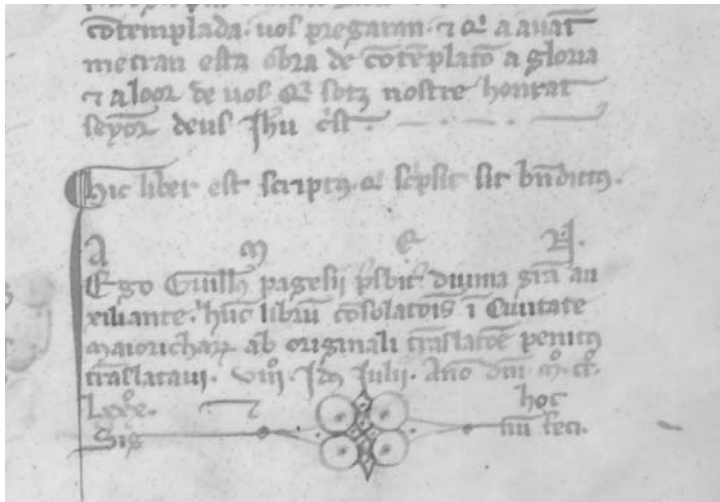 cõtemplada. uos pregaran. ⁊ qͥ a auãt
metran esta obra de cõtẽplatõ a gloria
⁊ a loor de uos qͥ sotz nostre honrat
seyor deus Jhũ cͥst.
Hic liber est scriptꝰ. qͥ scͥpsit sit bñdictꝰ.
A M E N.
Ego Guillꝰ pagesii p̃sbitͥ. diuina gr̃a au
xiliante. hũc librũ cõsolatõis ĩ Ciuitate
maioricharꝝ ab originali trãslatõe penitꝰ
trãslataui. viijͦ. Idꝰ Iulii. Año dñi Mͦ. ccͦ.
Lxxxͦ.
hoc
Sig nũ feci.